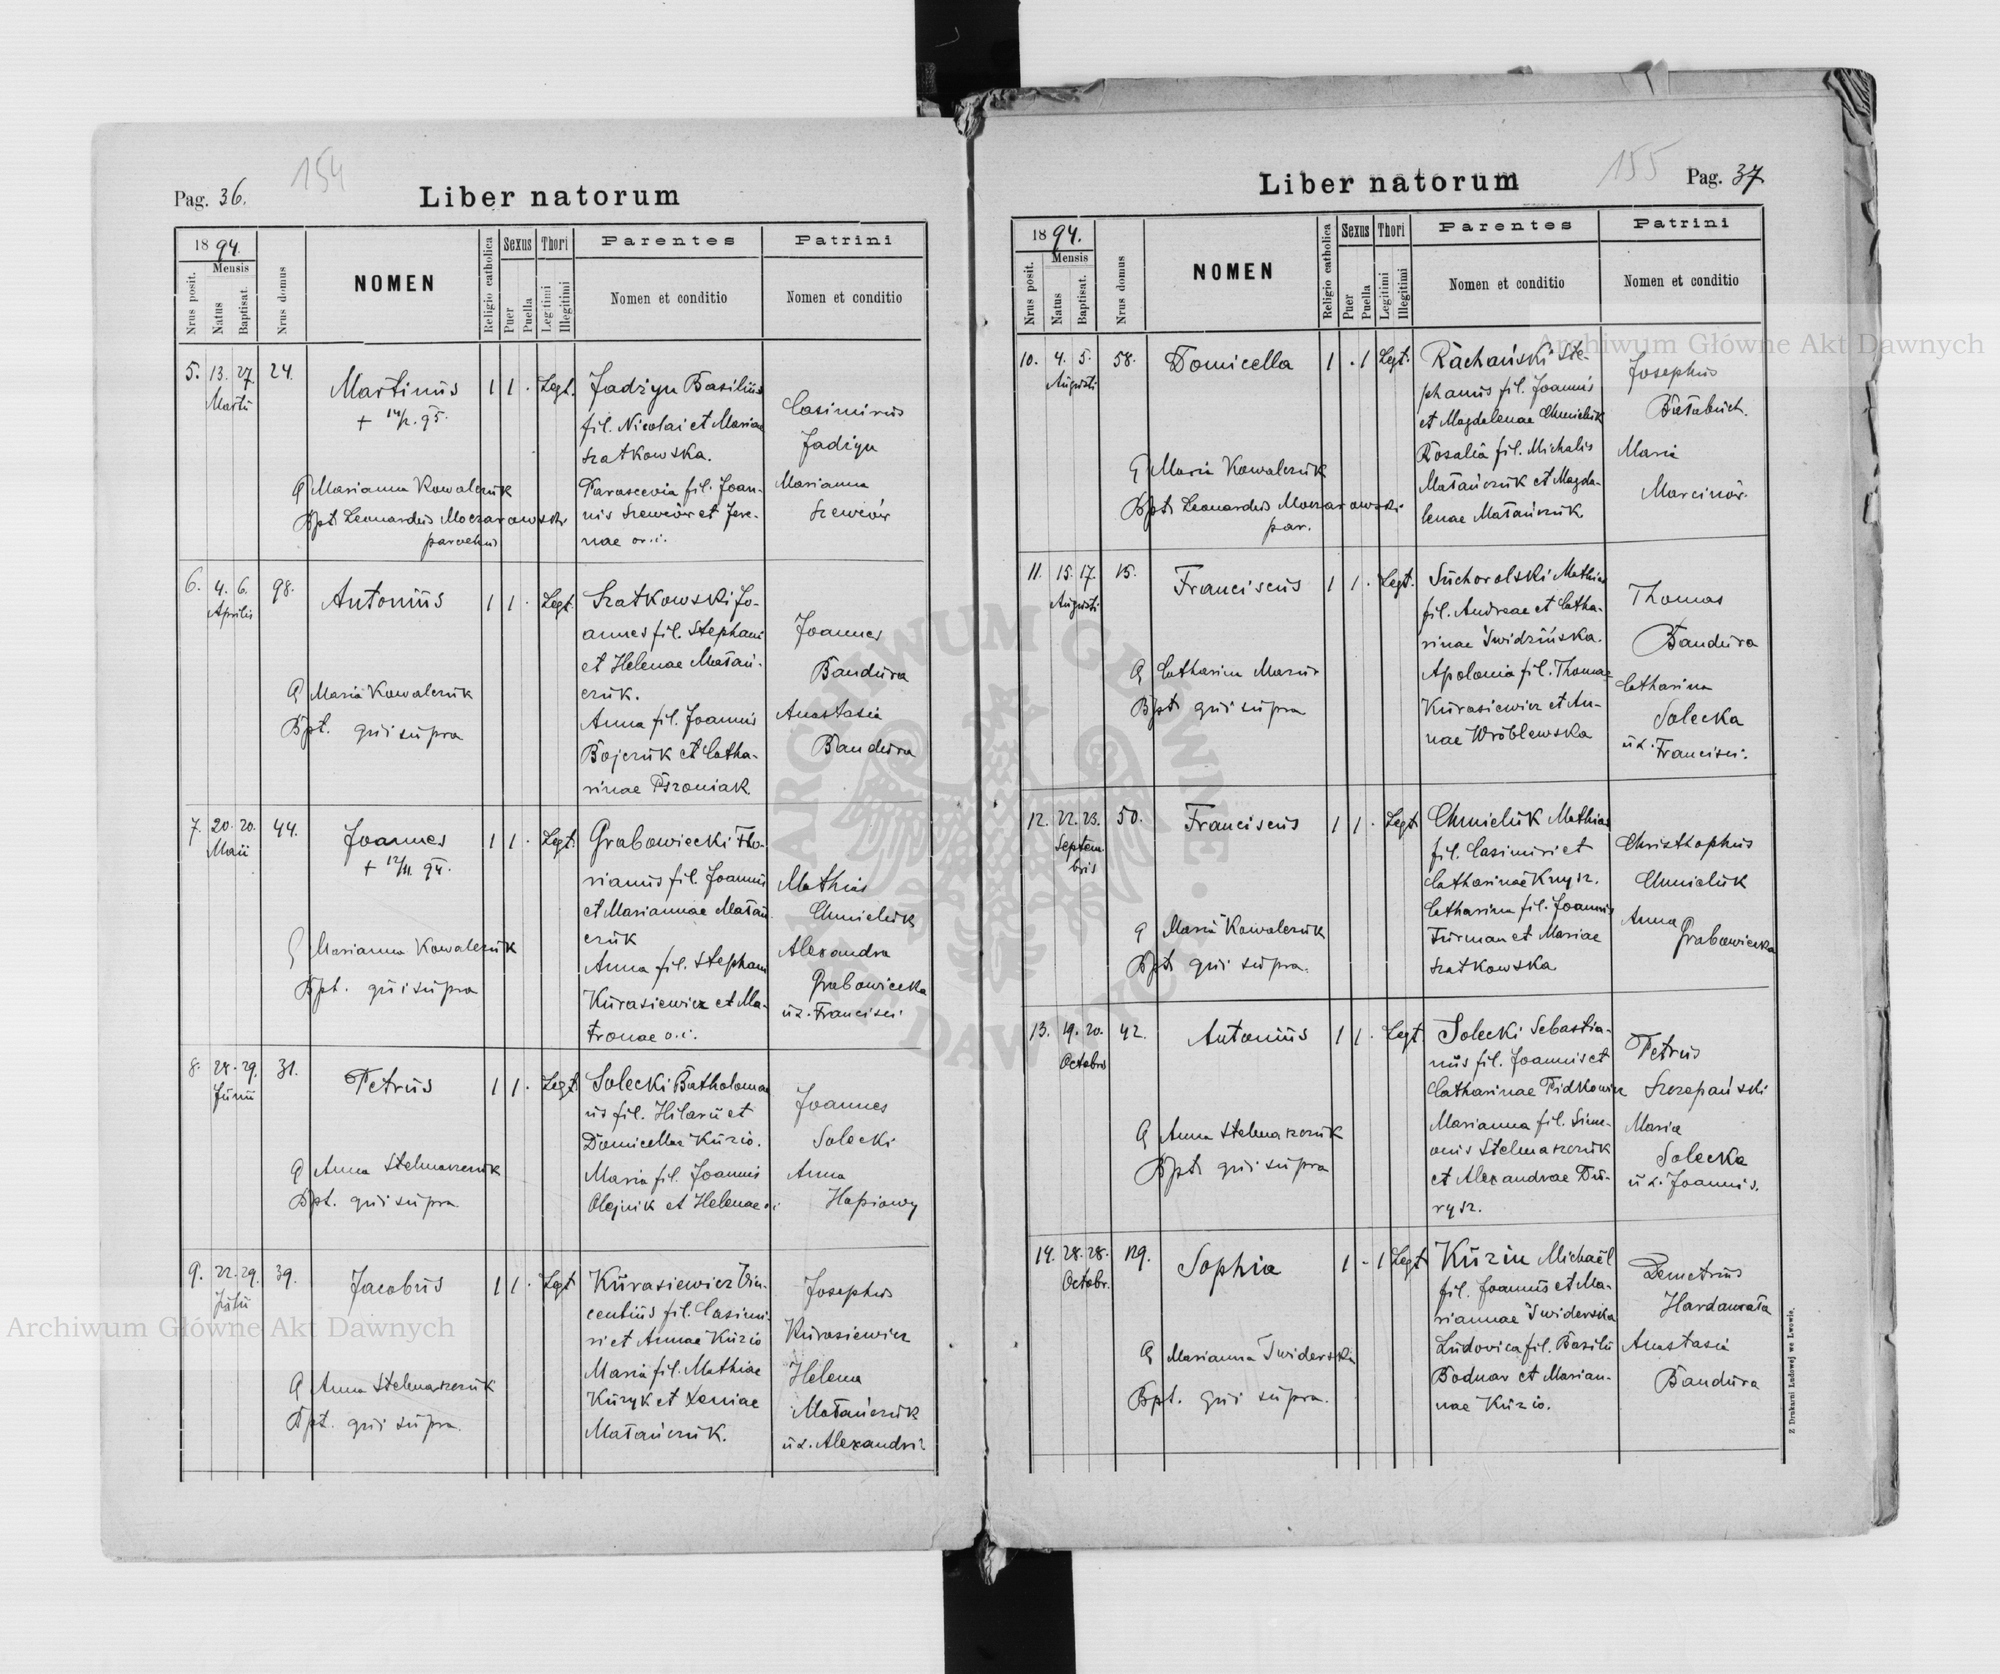 154
Pag. 36.
Liber natorum
1894.
Nrus posit.
Mensis
Natus
Baptisat.
Nrus domus
NOMEN
Religio catholica
Sexus
Puer
Puella
Thori
Legitimi
Illegitimi
Parentes
Nomen et conditio
Patrini
Nomen et conditio
5. 13. 27. 24.
Martii
Martinus 1 1 . Legt.
+ 14/2. 95.
Marianna Kowalczuk
Bpt. Leonardus Moczarowski
parochus
Jadzyn Basilius
fil. Nicolai et Mariae
Szatkowska.
Parascevia fil. Joan-
nis Szewców et Jere-
nae o.i.
Casimirus
Jadzyn
Marianna
Szewców
6. 4. 6. 98.
Aprilis
Antonius 1 1 . Legt.
Maria Kowalczuk
Bpt. qui supra
Szatkowski Jo-
annes fil. Stephani
et Helenae Matań-
czuk.
Anna fil. Joannis
Bojczuk et Catha-
rinae Pszoniak.
Joannes
Bandura
Anastasia
Bandura
7. 20. 20. 44.
Maii
Joannes 1 1 . Legt.
+ 12/11. 94.
Marianna Kowalczuk
Bpt. qui supra
Grabowiecki Flo-
rianus fil. Joannis
et Mariannae Matań-
czuk
Anna fil. Stephani
Kurasiewicz et Ma-
tronae o.i.
Mathias
Chmieluk
Alexandra
Grabowiecka
ux. Francisci
8. 28. 29. 31.
Junii
Petrus 1 1 . Legt.
Anna Stelmaszczuk
Bpt. qui supra
Solecki Bartholomae
us fil. Hilarii et
Domicellae Kuzio.
Maria fil. Joannis
Olejnik et Helenae o.i
Joannes
Solecki
Anna
Hapiowy
9. 22. 29. 39.
Julii
Jacobus 1 1 . Legt
Anna Stelmaszczuk
Bpt. qui supra
Kurasiewicz Vin-
centius fil. Casimi-
ri et Annae Kuzio
Maria fil. Mathiae
Kuzyk et Xeniae
Matańczuk.
Josephus
Kurasiewicz
Helena
Matańczuk
ux. Alexandri
Archiwum Główne Akt Dawnych
155
Pag. 37.
Liber natorum
1894.
Nrus posit.
Mensis
Natus
Baptisat.
Nrus domus
NOMEN
Religio catholica
Sexus
Puer
Puella
Thori
Legitimi
Illegitimi
Parentes
Nomen et conditio
Patrini
Nomen et conditio
Archiwum Główne Akt Dawnych
10. 4. 5. 58.
Augusti
Domicella 1 . 1 Legt.
Maria Kowalczuk
Bpt. Leonardus Moczarowski
par.
Rachański Ste-
phanus fil. Joannis
et Magdalenae Chmieluk
Rosalia fil. Michalis
Matańczuk et Magda-
lenae Matańczuk
Josephus
Maria
Marcinów.
11. 15. 17. 15.
Augusti
Franciscus 1 1 . Legt.
Catharina Mazur
Bpt. qui supra
Suchorolski Mathias
fil. Andreae et Catha-
rinae Świdzińska.
Apolonia fil. Thomae
Kurasiewicz et An-
nae Wróblewska
Thomas
Bandura
Catharina
Solecka
ux. Francisci.
12. 22. 23. 50.
Septem
bris
Franciscus 1 1 . Legt
Maria Kowalczuk
Bpt. qui supra.
Chmieluk Mathias
fil. Casimiri et
Catharinae Knysz.
Catharina fil. Joannis
Furman et Mariae
Szatkowska
Christhophus
Chmieluk
Anna
Grabowiecka
13. 19. 20. 42.
Octobris
Antonius 1 1 . Legt.
Anna Stelmaszczuk
Bpt. qui supra
Solecki Sebastia-
nus fil. Joannis et
Catharinae Fidkowicz
Marianna fil. Sime-
onis Stelmaszczuk
et Alexandrae Du-
rysz.
Petrus
Szczepański
Maria
Solecka
ux. Joannis.
14. 28. 28. 129.
Octobr.
Sophia 1 - 1 Legt
Marianna Świderska
Bpt. qui supra.
Kuziu Michaël
fil. Joannis et Ma-
riannae Świderska
Ludovica fil. Basilii
Bodnar et Marian-
nae Kuzio.
Demetrius
Hardawała
Anastasia
Bandura
Z Drukarni Ludowej we Lwowie.
ARCHIWUM GŁÓWNE AKT DAWNYCH